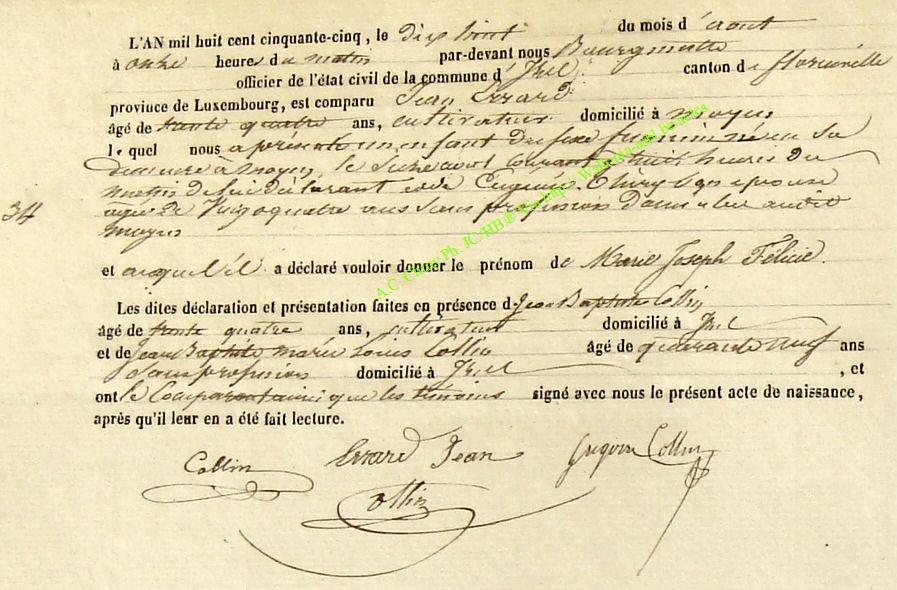 L'AN mil huit cent cinquante-cinq, le dix huit du mois d'aout
à onze heures du matin par-devant nous Bourgmestre
officier de l'état civil de la commune d'Izel canton de florenville
province de Luxembourg, est comparu Jean Errard
âgé de trente quatre ans, cultivateur domicilié à moyen
lequel nous a présenté un enfant du sexe feminin né en sa
demeure à moyen, le seize aout courant à huit heures du
matin de lui déclarant et de Eugénie Thiry son epouse
agée de Vingt quatre ans sans profession domiciliée audit
moyen
34
et auquel il a déclaré vouloir donner le prénom de Marie Joseph Félicie.
Les dites déclaration et présentation faites en présence de Jean Baptiste Collin
âgé de trente quatre ans, cultivateur domicilié à Izel
et de Jean Baptiste marie Louis Collin âgé de quarante neuf ans
Sans profession domicilié à Izel, et
ont le Comparant ainsi que les témoins signé avec nous le présent acte de naissance,
après qu'il leur en a été fait lecture.
Collin Errard Jean Collin
Collin
A.C. Chiny Ph JC/HB©